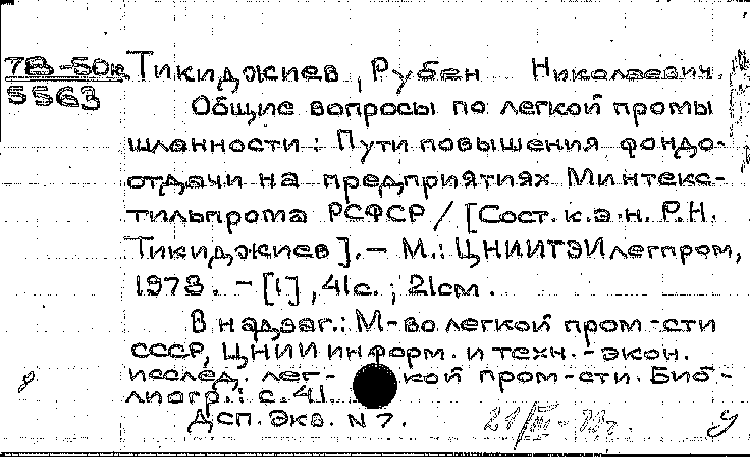 78-50к Тикиджиев, Рубен Николаевич.
5563 Общие вопросы по легкой промы
шланности: Пути повышения фондо-
отдачи на предприятиях Минтекс-
тильпрома РСФСР / [Сост. к.э.н. Р.Н.
Тикиджиев]. — М.: ЦНИИТЭИлегпром,
1978. — [1], 41с.; 21см.
В надзаг.: М-во легкой пром-сти
СССР, ЦНИИ информ. и техн.-экон.
исслед. лег- кой пром-сти. Биб-
лиогр.: с. 41.
ДСП. Экз. N 7.